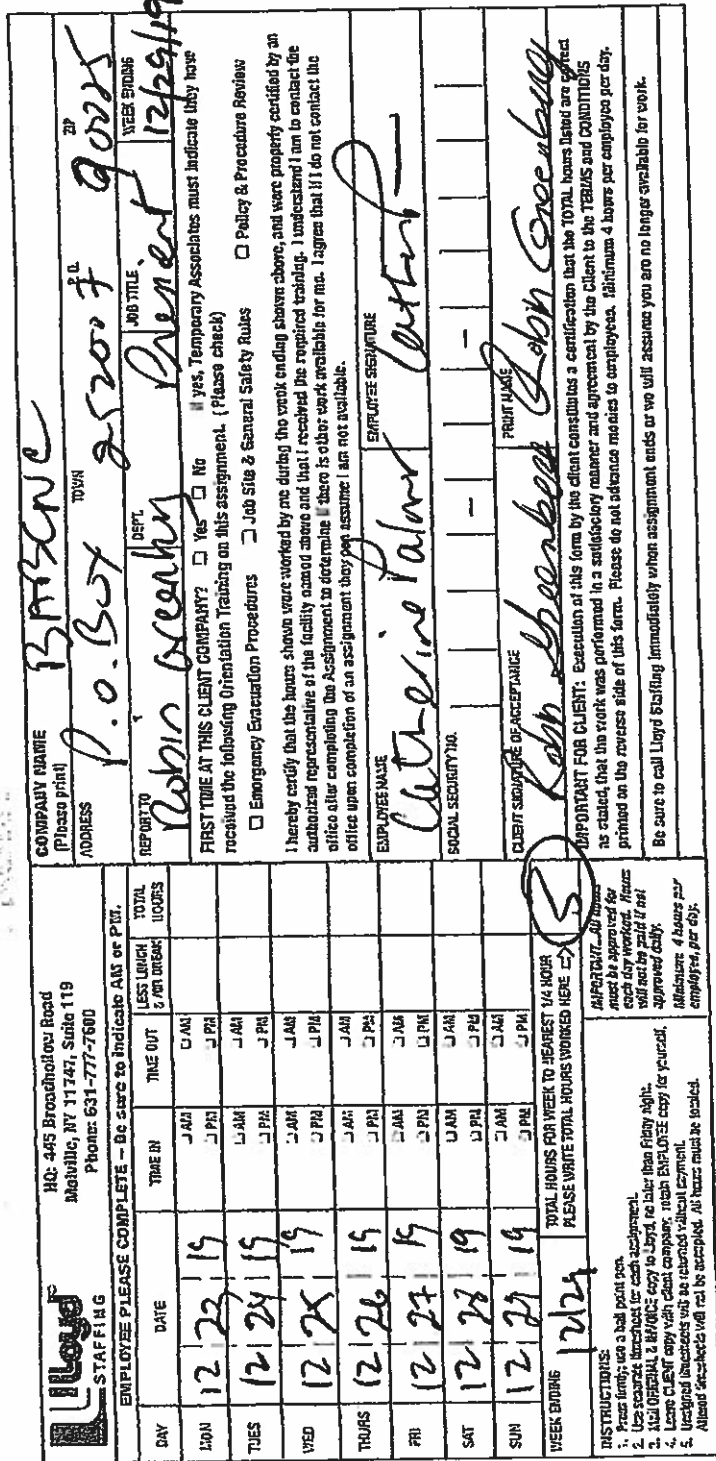 Lloyd
STAFFING
HQ: 445 Broadhollow Road
Melville, NY 11747, Suite 119
Phone: 631-777-7600
EMPLOYEE PLEASE COMPLETE – Be sure to indicate AM or PM.
DAY DATE TIME IN TIME OUT LESS LUNCH &/OR BREAK TOTAL HOURS
MON 12 23 19 AM PM AM PM
TUES 12 24 19 AM PM AM PM
WED 12 25 19 AM PM AM PM
THURS 12 26 19 AM PM AM PM
FRI 12 27 19 AM PM AM PM
SAT 12 28 19 AM PM AM PM
SUN 12 29 19 AM PM AM PM
WEEK ENDING 12/29
TOTAL HOURS FOR WEEK TO NEAREST 1/4 HOUR
PLEASE WRITE TOTAL HOURS WORKED HERE
INSTRUCTIONS:
1. Press firmly: use a ball point pen.
2. Use separate timesheet for each assignment.
3. Mail ORIGINAL & INVOICE copy to Lloyd, no later than Friday night.
4. Leave CLIENT copy with client company, retain EMPLOYEE copy for yourself.
5. Unsigned timesheets will be returned without payment.
Altered timesheets will not be accepted. All hours must be totaled.
IMPORTANT...All hours
must be approved for
each day worked. Hours
will not be paid if not
approved daily.
Minimum 4 hours per
employee, per day.
COMPANY NAME
(Please print)
ADDRESS P.O. Box 252007 TOWN ZIP 90025
REPORT TO Robin Greenberg DEPT. JOB TITLE President WEEK ENDING 12/29/19
FIRST TIME AT THIS CLIENT COMPANY? Yes No If yes, Temporary Associates must indicate they have
received the following Orientation Training on this assignment. (Please check)
Emergency Evacuation Procedures Job Site & General Safety Rules Policy & Procedure Review
I hereby certify that the hours shown were worked by me during the week ending shown above, and were properly certified by an
authorized representative of the facility named above and that I received the required training. I understand I am to contact the
office after completing the Assignment to determine if there is other work available for me. I agree that if I do not contact the
office upon completion of an assignment they can assume I am not available.
EMPLOYEE NAME Catherine Palmer EMPLOYEE SIGNATURE
SOCIAL SECURITY NO.
CLIENT SIGNATURE OF ACCEPTANCE Robin Greenberg PRINT NAME Robin Greenberg
IMPORTANT FOR CLIENT: Execution of this form by the client constitutes a certification that the TOTAL hours listed are correct
as stated, that the work was performed in a satisfactory manner and agreement by the Client to the TERMS and CONDITIONS
printed on the reverse side of this form. Please do not advance monies to employees. Minimum 4 hours per employee per day.
Be sure to call Lloyd Staffing immediately when assignment ends or we will assume you are no longer available for work.